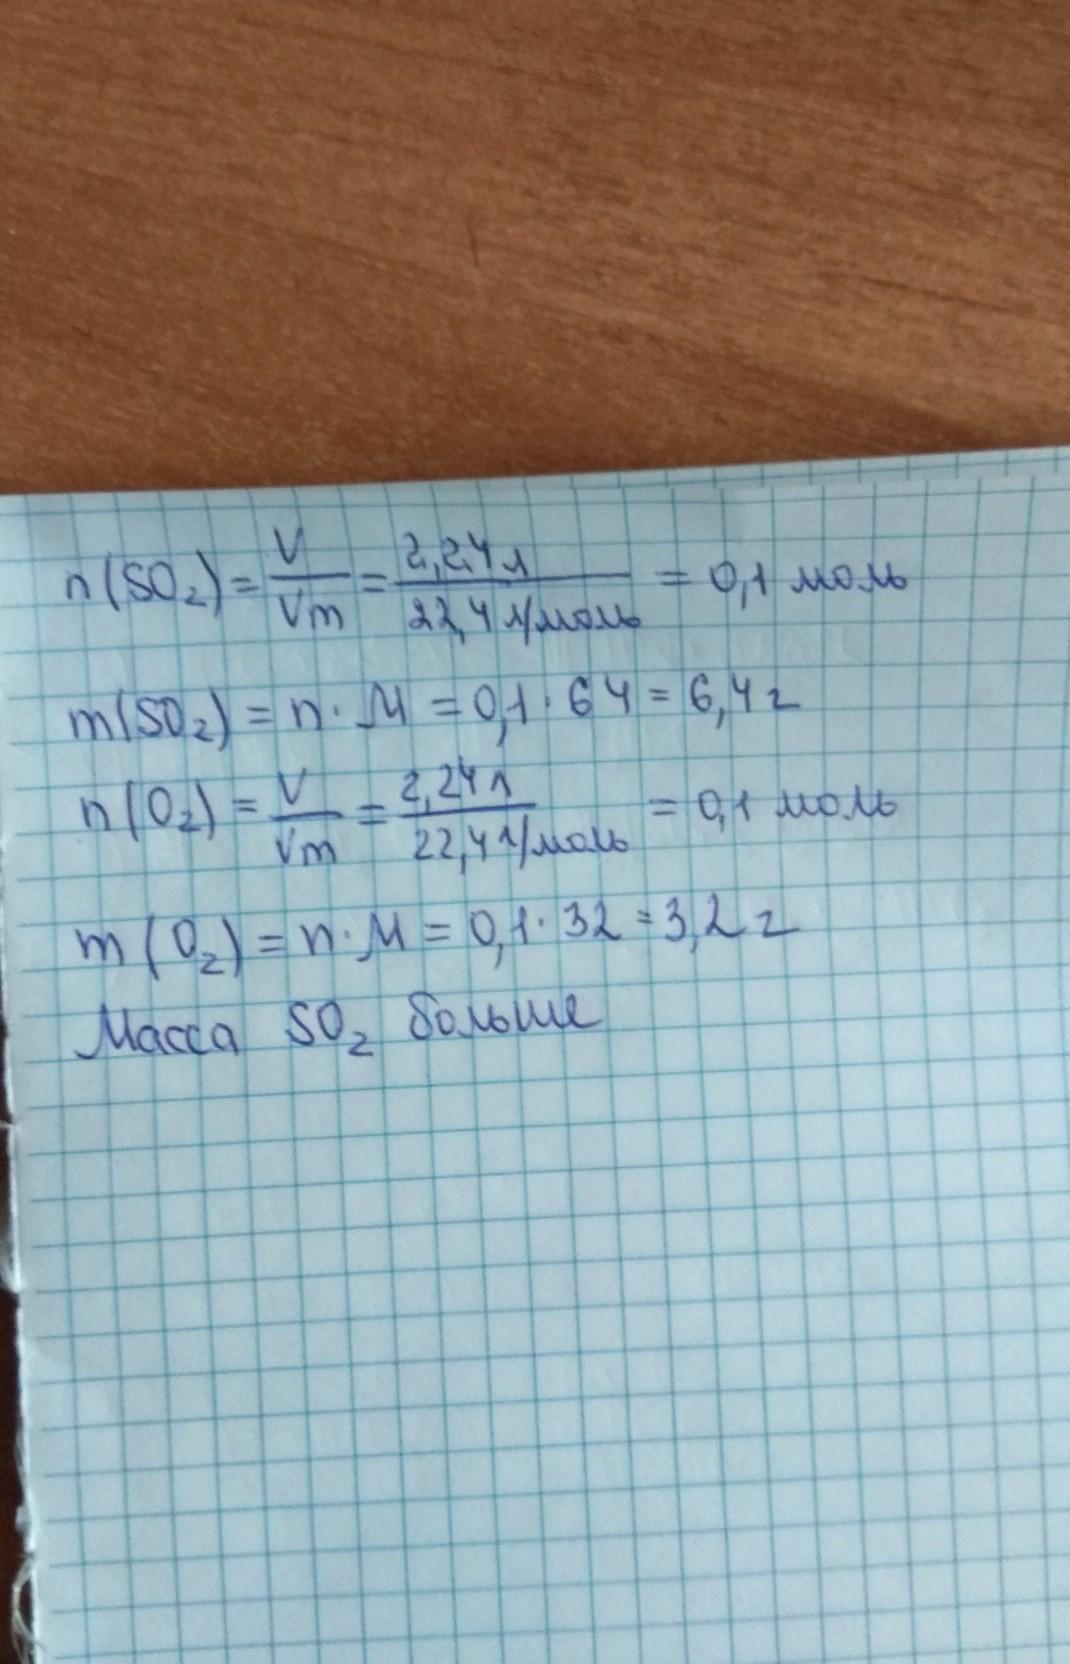 n(SO₂) = V/Vm = 2,24 л/22,4 л/моль = 0,1 моль
m(SO₂) = n · M = 0,1 · 64 = 6,4 г
n(O₂) = V/Vm = 2,24 л/22,4 л/моль = 0,1 моль
m(O₂) = n · M = 0,1 · 32 = 3,2 г
Масса SO₂ больше